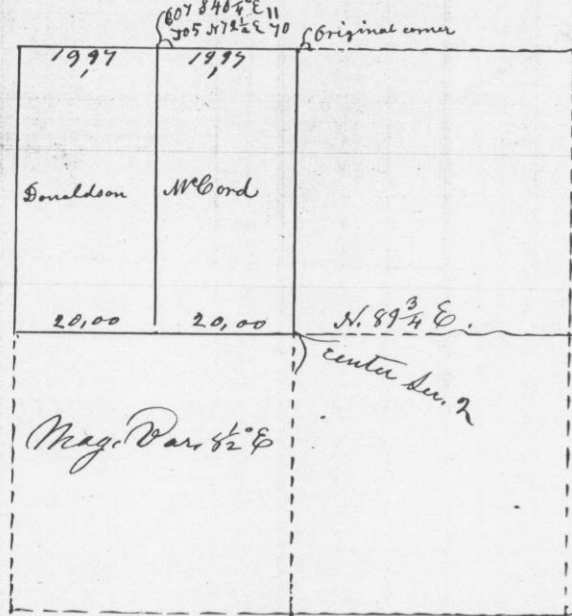 S40¾°E 11
N72½E 70
Original corner
19,97 19,97
Donaldson McCord
20,00 20,00 N. 89¾ E.
center Sec. 2
Mag. Var. 8½° E